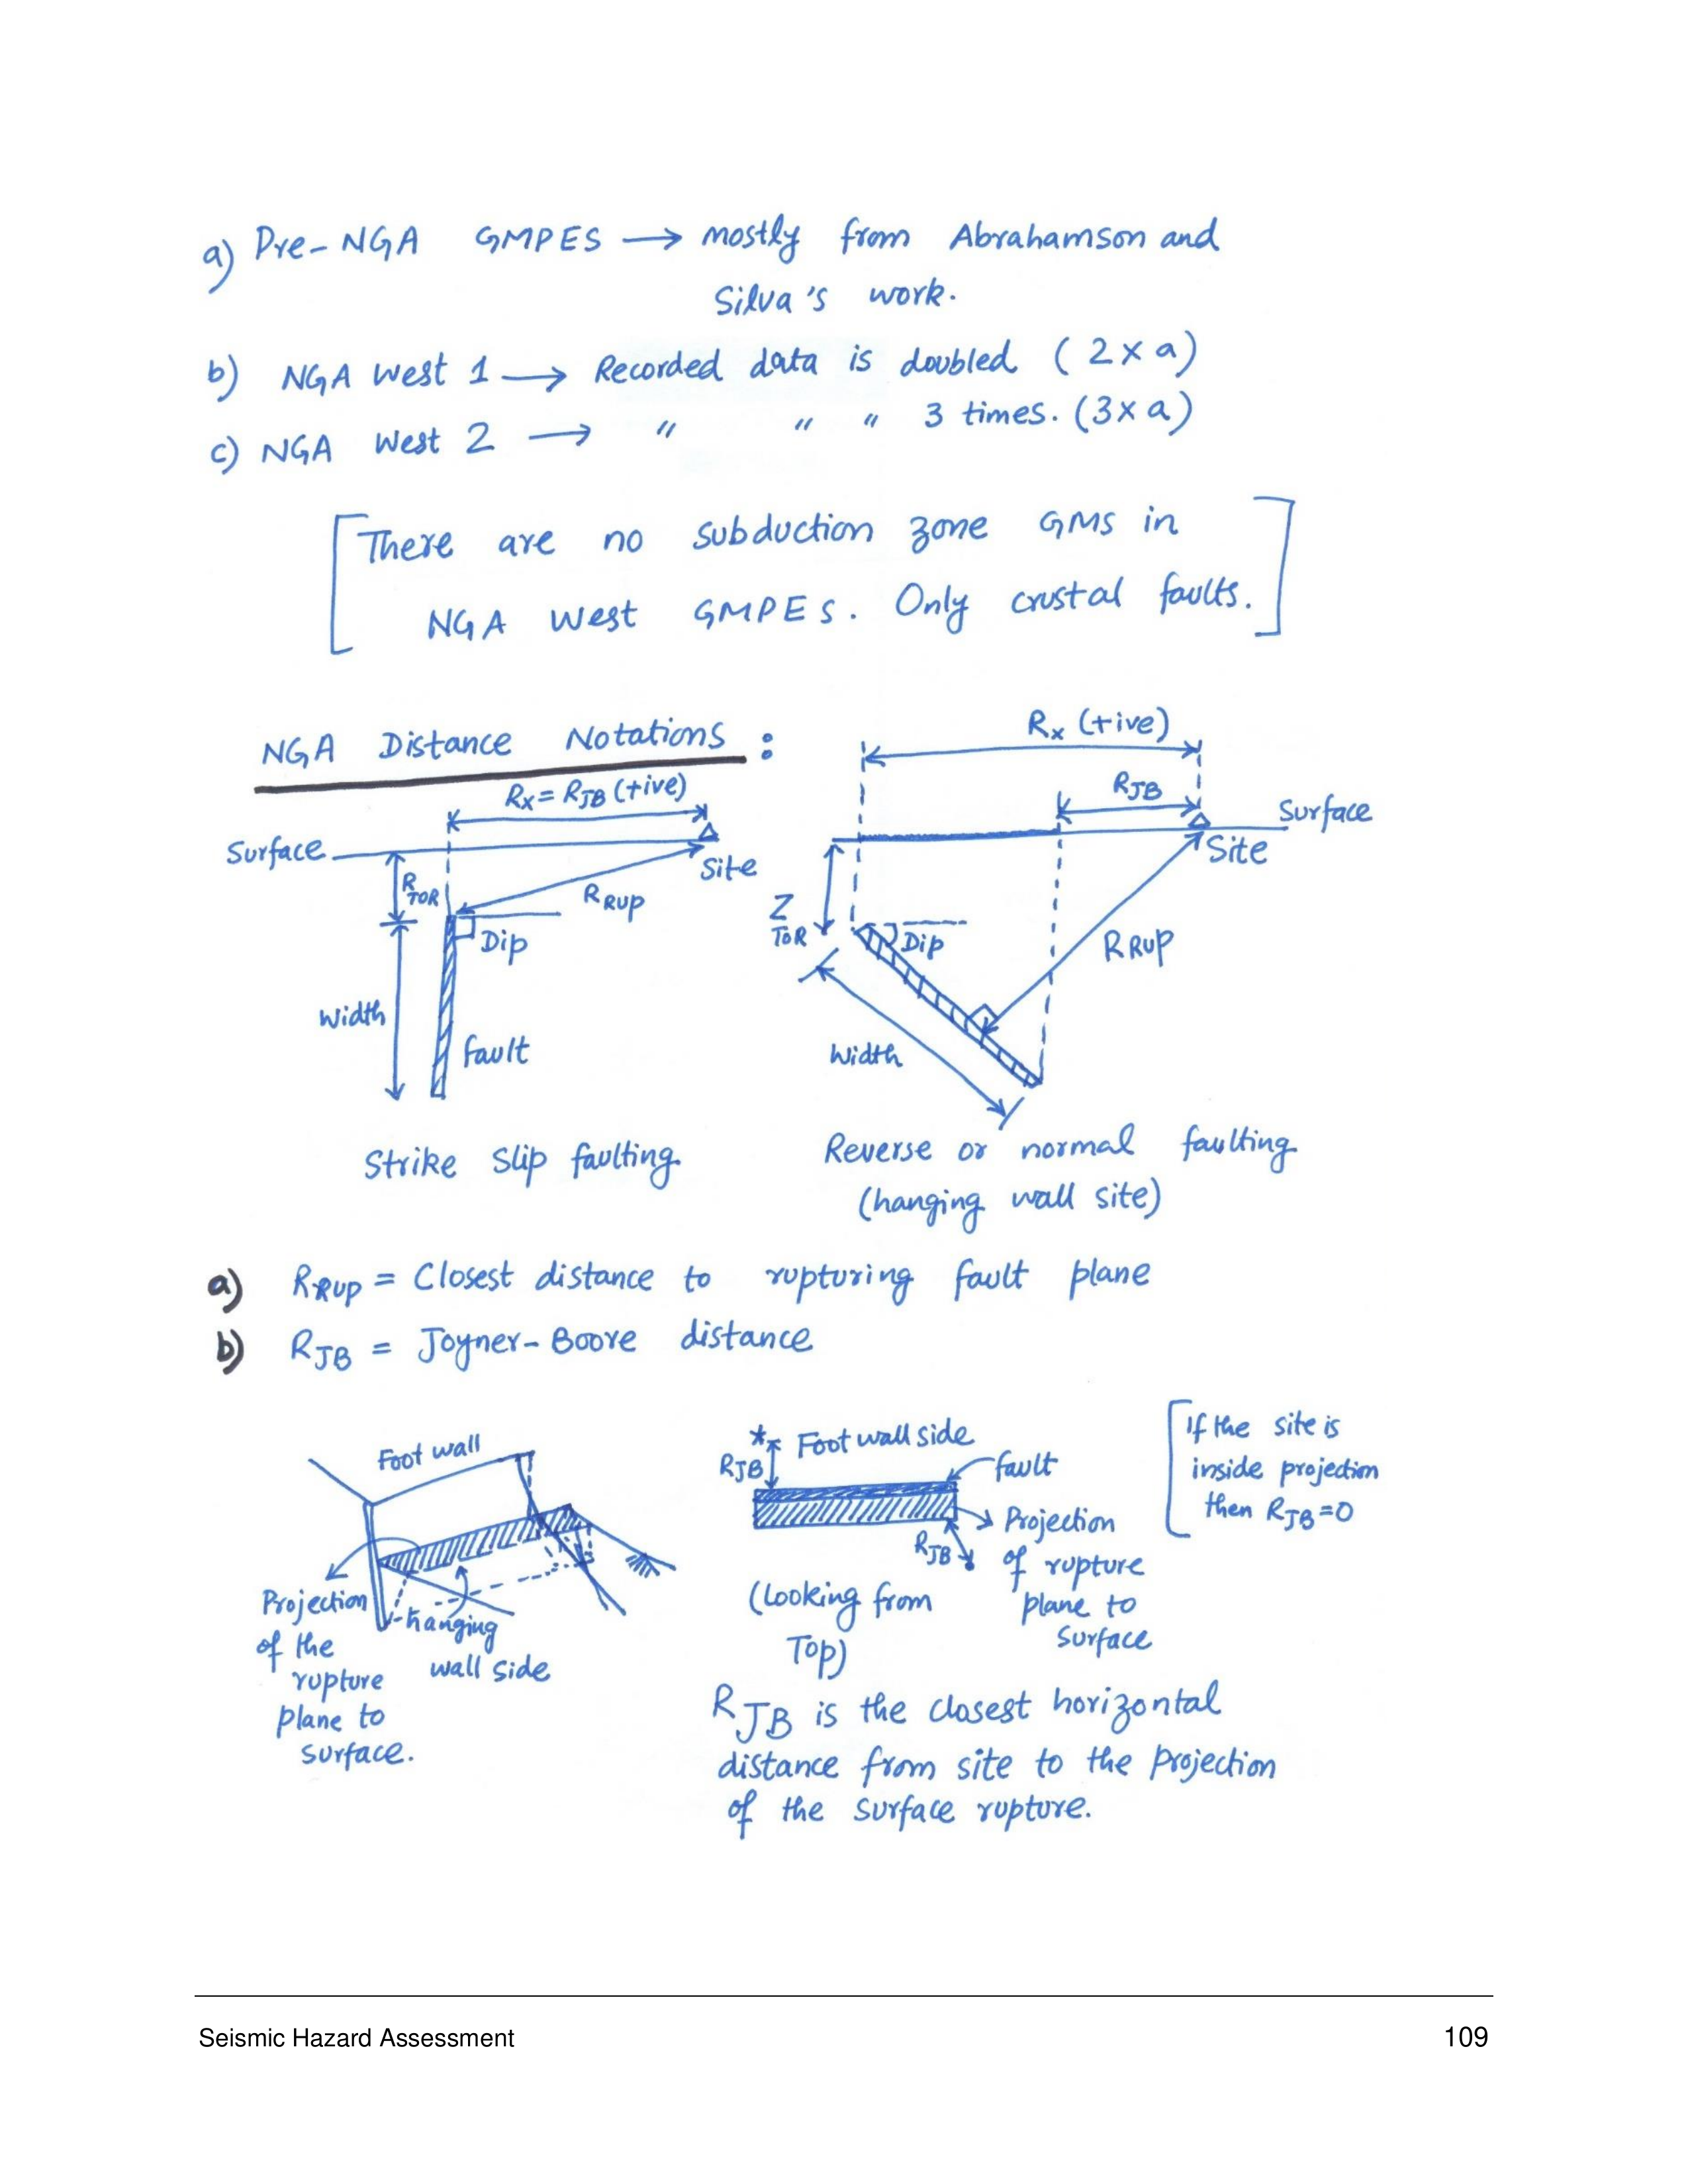 a) Pre-NGA GMPES → mostly from Abrahamson and
Silva's work.
b) NGA West 1 → Recorded data is doubled (2 x a)
c) NGA West 2 → " " " 3 times. (3 x a)
[There are no subduction zone GMS in
NGA West GMPES. Only crustal faults.]
NGA Distance Notations :
Rx = RJB (+ive)
Surface
Site
RTOR
RRUP
Dip
Width
fault
Strike Slip faulting
Rx (+ive)
RJB
Surface
Site
ZTOR
Dip
RRUP
Width
Reverse or normal faulting
(hanging wall site)
a) RRUP = Closest distance to rupturing fault plane
b) RJB = Joyner-Boore distance
Foot wall
Projection
of the
rupture
plane to
surface.
hanging
wall side
* Foot wall side
RJB
fault
RJB
Projection
of rupture
plane to
surface
(Looking from
Top)
[If the site is
inside projection
then RJB=0
RJB is the closest horizontal
distance from site to the projection
of the surface rupture.
Seismic Hazard Assessment 109